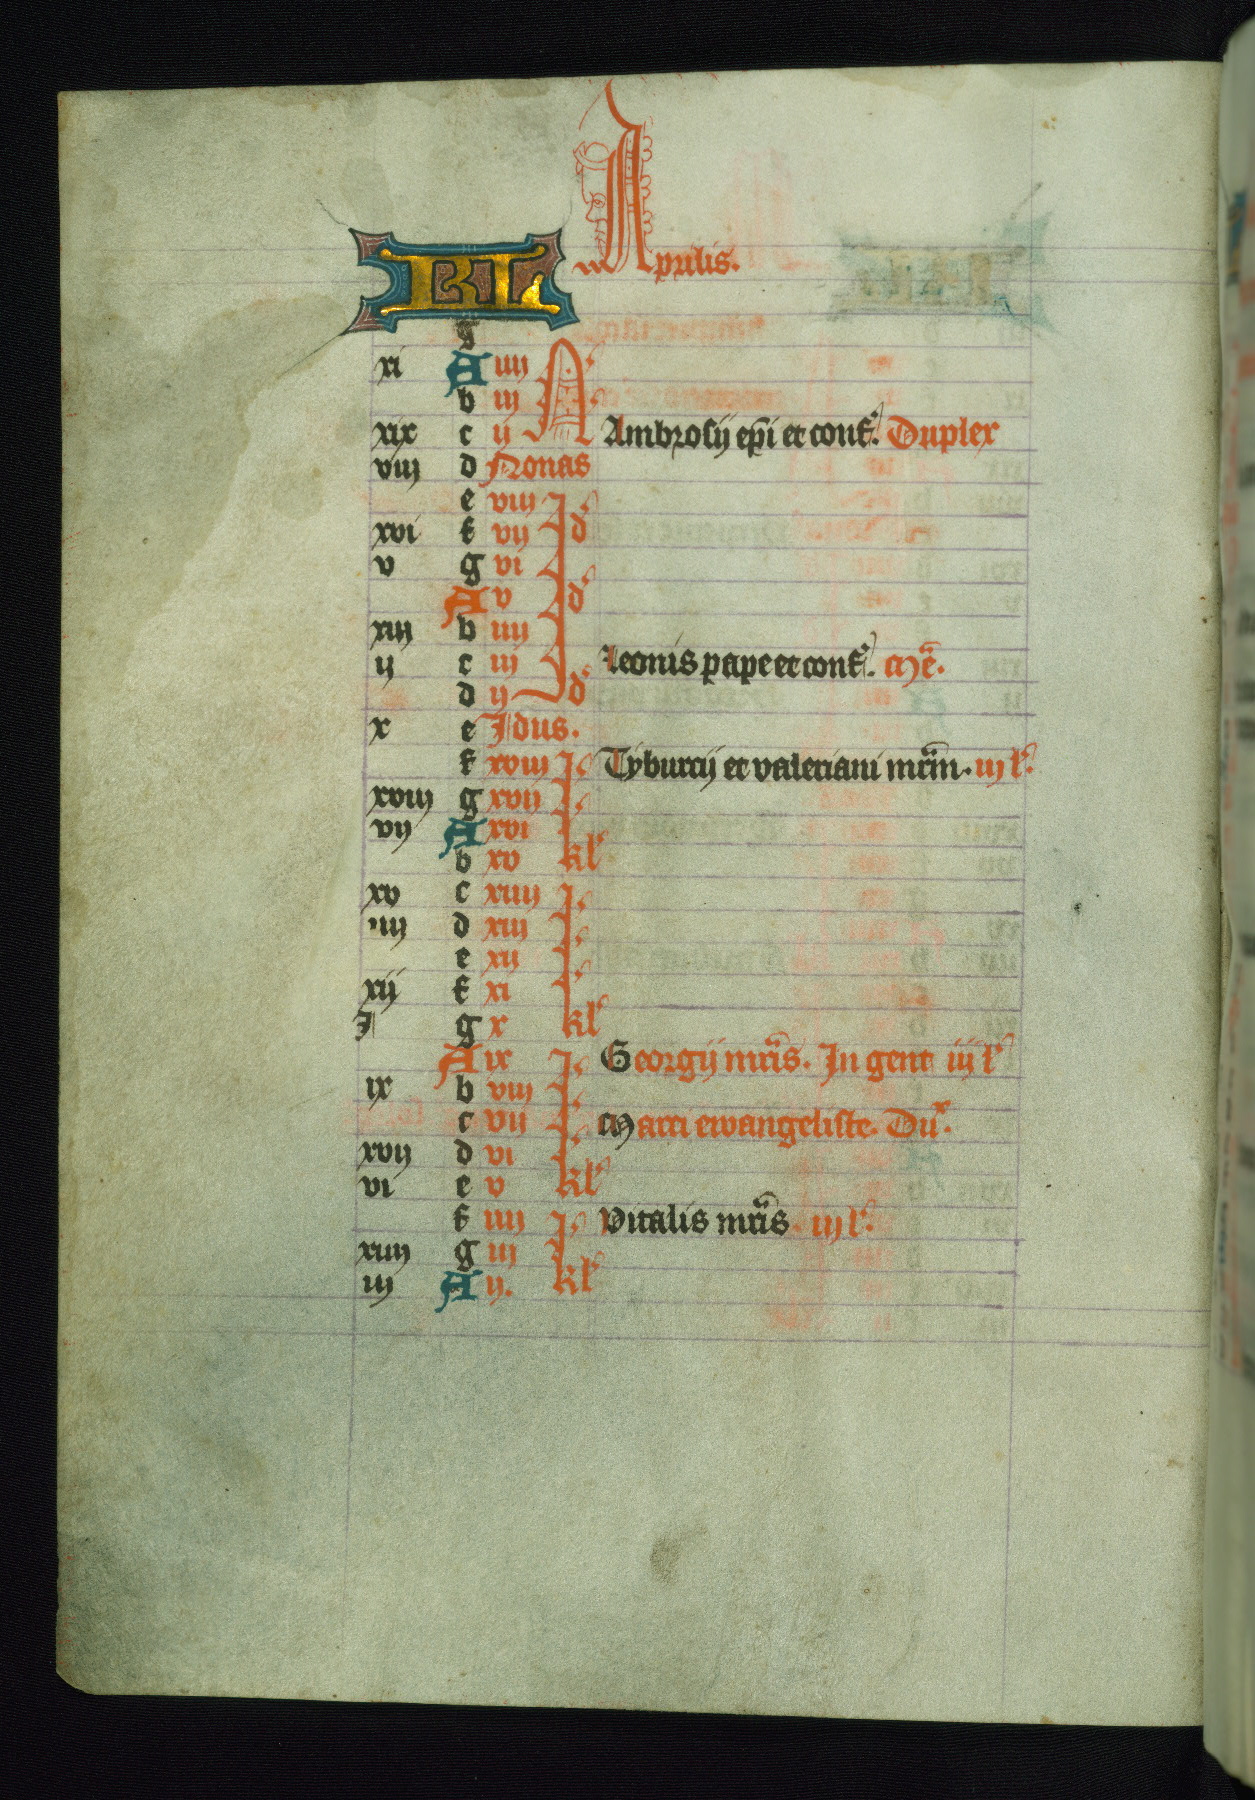 Aprilis.
KL
g
xi A iiij N
b iij
xix c ij Ambrosij epi et conf. Duplex
viij d Nonas
e viij
xvi f vij Id
v g vi
A v Id
xiij b iiij
ij c iij Leonis pape et conf. Me.
d ij Id
x e Idus.
f xviij Tyburcij et valeriani mrm. iij l.
xviij g xvij
vij A xvi
b xv kl
xv c xiiij
iiij d xiij
e xij
xij f xi
I g x kl
A ix Georgij mris. In gent iij l
ix b viij
c vij Marci ewangeliste. Du.
xvij d vi
vi e v kl
f iiij Vitalis mris. iij l.
xiiij g iij
iij A ij. kl